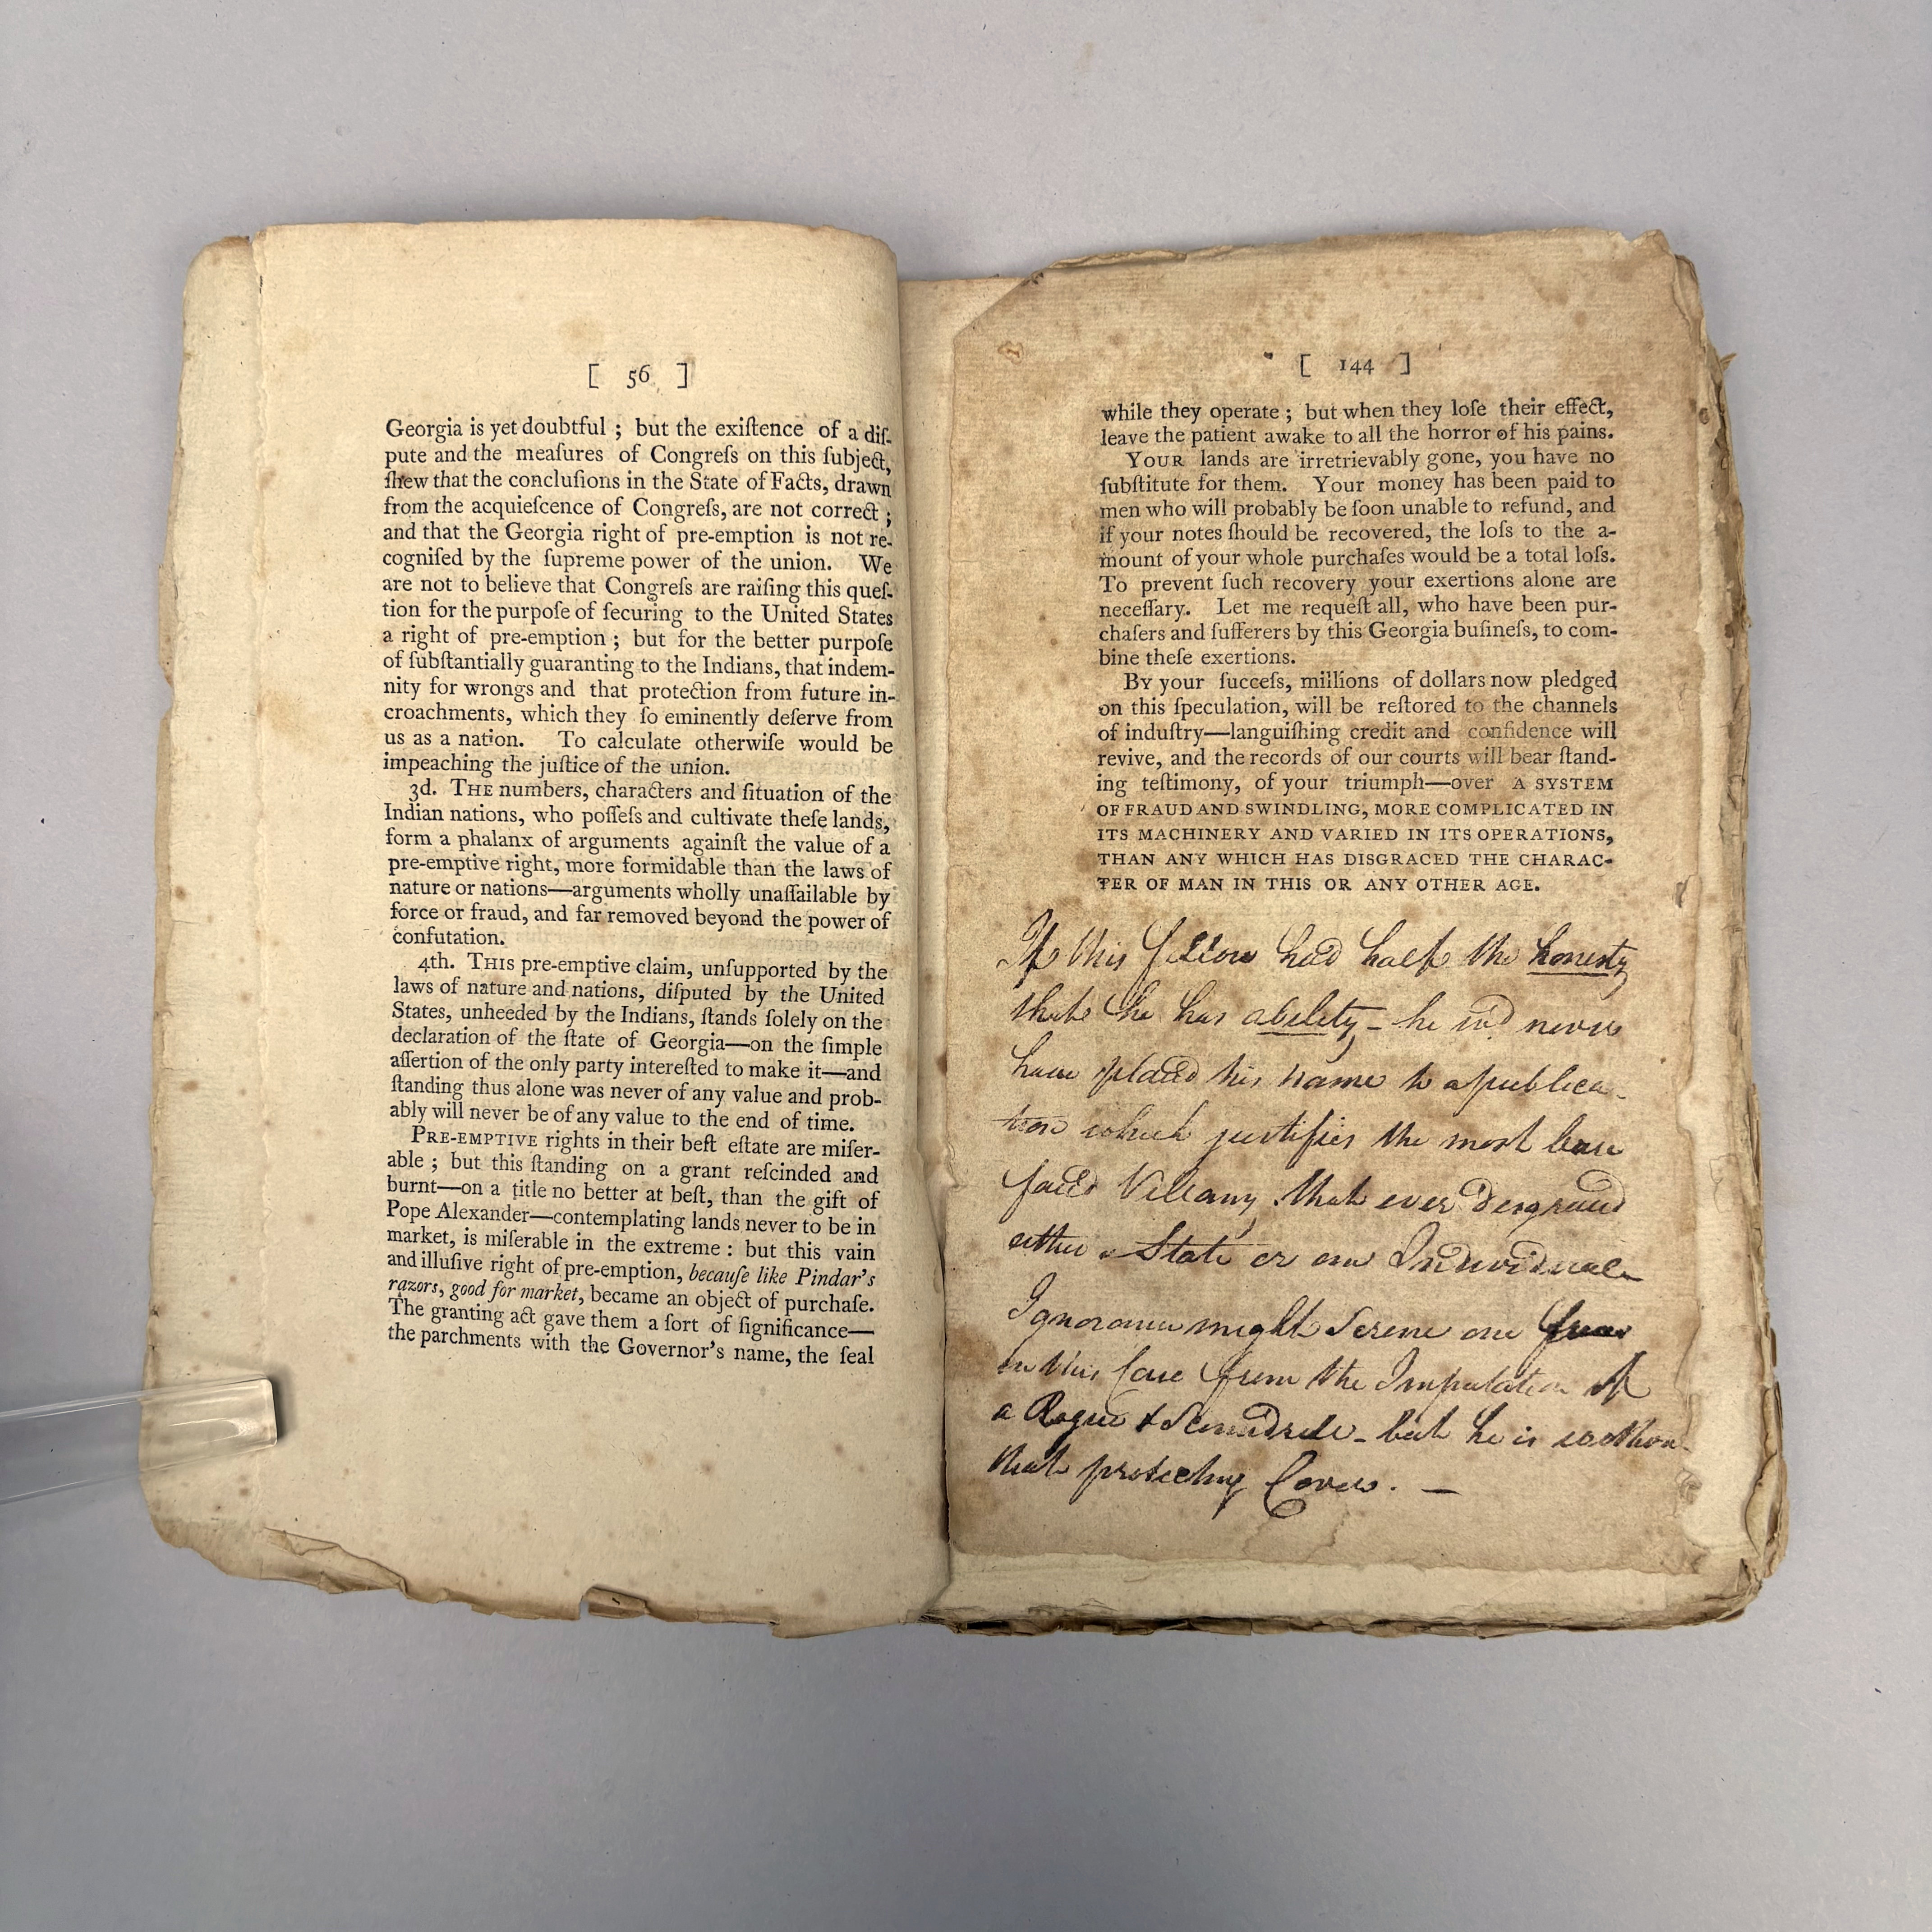 [ 56 ]
Georgia is yet doubtful ; but the exiſtence of a diſ-
pute and the meaſures of Congreſs on this ſubject,
ſhew that the concluſions in the State of Facts, drawn
from the acquieſcence of Congreſs, are not correct ;
and that the Georgia right of pre-emption is not re-
cogniſed by the ſupreme power of the union. We
are not to believe that Congreſs are raiſing this queſ-
tion for the purpoſe of ſecuring to the United States
a right of pre-emption ; but for the better purpoſe
of ſubſtantially guaranting to the Indians, that indem-
nity for wrongs and that protection from future in-
croachments, which they ſo eminently deſerve from
us as a nation. To calculate otherwiſe would be
impeaching the juſtice of the union.
3d. THE numbers, characters and ſituation of the
Indian nations, who poſſeſs and cultivate theſe lands,
form a phalanx of arguments againſt the value of a
pre-emptive right, more formidable than the laws of
nature or nations—arguments wholly unaſſailable by
force or fraud, and far removed beyond the power of
confutation.
4th. THIS pre-emptive claim, unſupported by the
laws of nature and nations, diſputed by the United
States, unheeded by the Indians, ſtands ſolely on the
declaration of the ſtate of Georgia—on the ſimple
aſſertion of the only party intereſted to make it—and
ſtanding thus alone was never of any value and prob-
ably will never be of any value to the end of time.
PRE-EMPTIVE rights in their beſt eſtate are miſer-
able ; but this ſtanding on a grant reſcinded and
burnt—on a title no better at beſt, than the gift of
Pope Alexander—contemplating lands never to be in
market, is miſerable in the extreme : but this vain
and illuſive right of pre-emption, becauſe like Pindar's
razors, good for market, became an object of purchaſe.
The granting act gave them a ſort of ſignificance—
the parchments with the Governor's name, the ſeal
[ 144 ]
while they operate ; but when they loſe their effect,
leave the patient awake to all the horror of his pains.
YOUR lands are irretrievably gone, you have no
ſubſtitute for them. Your money has been paid to
men who will probably be ſoon unable to refund, and
if your notes ſhould be recovered, the loſs to the a-
mount of your whole purchaſes would be a total loſs.
To prevent ſuch recovery your exertions alone are
neceſſary. Let me requeſt all, who have been pur-
chaſers and ſufferers by this Georgia buſineſs, to com-
bine theſe exertions.
BY your ſucceſs, millions of dollars now pledged
on this ſpeculation, will be reſtored to the channels
of induſtry—languiſhing credit and confidence will
revive, and the records of our courts will bear ſtand-
ing teſtimony, of your triumph—over A SYSTEM
OF FRAUD AND SWINDLING, MORE COMPLICATED IN
ITS MACHINERY AND VARIED IN ITS OPERATIONS,
THAN ANY WHICH HAS DISGRACED THE CHARAC-
TER OF MAN IN THIS OR ANY OTHER AGE.
If this fellow had half the honesty
that he has ability - he wd never
have placed his name to a publica-
tion which justifies the most bare
faced Villany that ever disgraced
either a State or an Individual
Ignorance might Screne one
in this case from the Imputation of
a Rogue & Scoundrele - but he is without
that protecting Cover. —